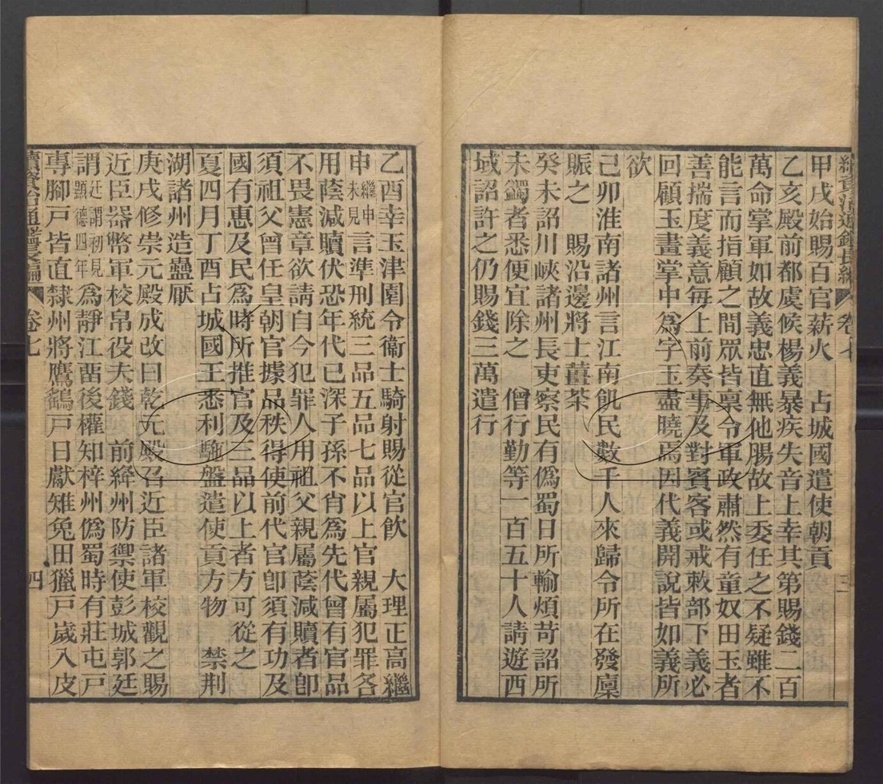 續資治通鑑長編 卷七 三
甲戌始賜百官薪火 占城國遣使朝貢
乙亥殿前都虞候楊義暴疾失音上幸其第賜錢二百
萬命掌軍如故義忠直無他腸故上委任之不疑雖不
能言而指顧之間眾皆稟令軍政肅然有童奴田玉者
善揣度義意每上前奏事及對賓客或戒敕部下義必
回顧玉畫掌中為字玉盡曉焉因代義開說皆如義所
欲
己卯淮南諸州言江南飢民數千人來歸令所在發廩
賑之 賜沿邊將士薑茶
癸未詔川峽諸州長吏察民有偽蜀日所輸煩苛詔所
未蠲者悉便宜除之 僧行勤等一百五十人請遊西
域詔許之仍賜錢三萬遣行
乙酉幸玉津園令衞士騎射賜從官飲 大理正高繼
申繼申未見言準刑統三品五品七品以上官親屬犯罪各
用蔭減贖伏恐年代已深子孫不肖為先代曾有官品
不畏憲章欲請自今犯罪人用祖父親屬蔭減贖者卽
須祖父曾任皇朝官據品秩得使前代官卽須有功及
國有惠及民為時所推官及三品以上者方可從之
夏四月丁酉占城國王悉利駞盤遣使貢方物 禁荆
湖諸州造蠱厭
庚戌修崇元殿成改曰乾元殿召近臣諸軍校觀之賜
近臣器幣軍校帛役夫錢 前絳州防禦使彭城郭廷
謂廷謂初見顯德四年為靜江畱後權知梓州偽蜀時有莊屯戸
專腳戸皆直隸州將鷹鷂戸日獻雉兔田獵戸歲入皮
續資治通鑑長編 卷七 四